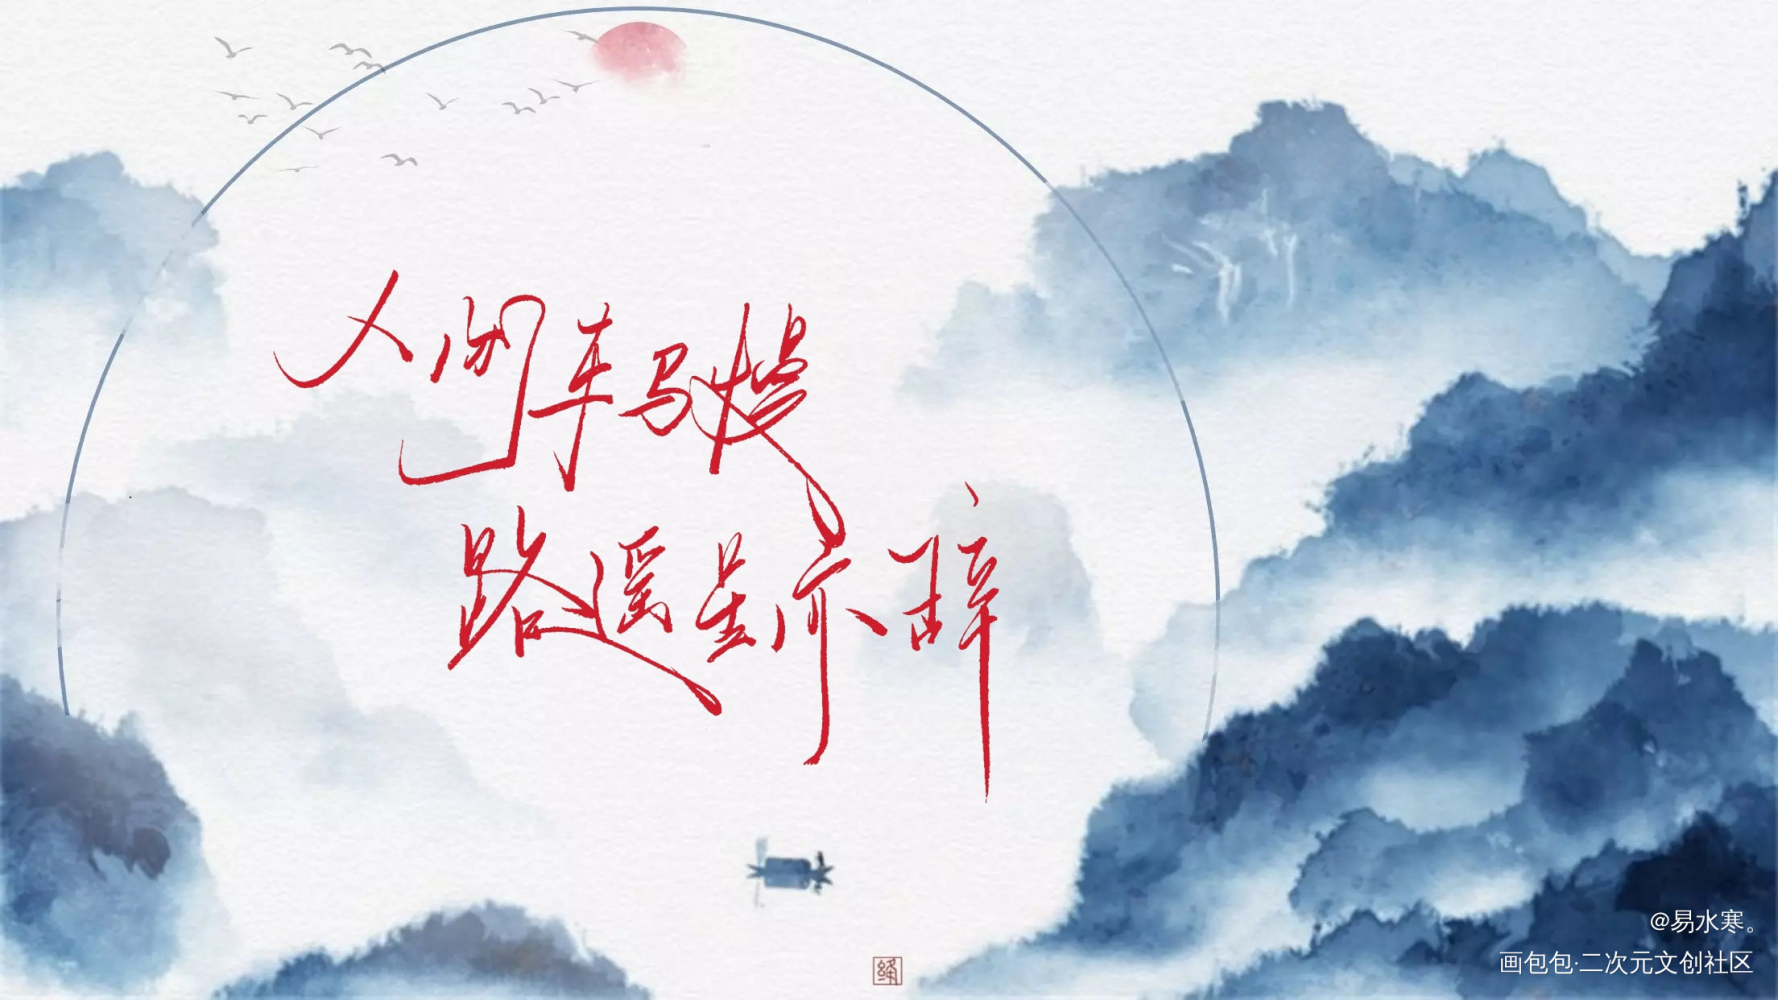 人间车马慢
路遥星亦辞
绛
@易水寒。
画包包·二次元文创社区